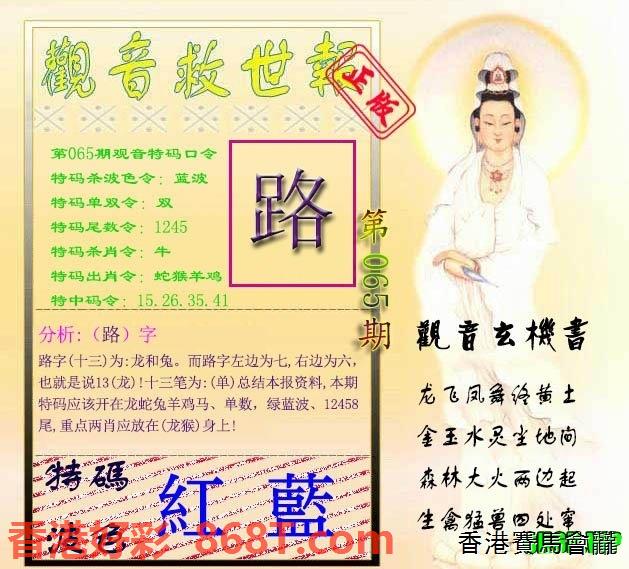 觀音救世報
正版
第065期观音特码口令
特码杀波色令：蓝波
特码单双令：双
特码尾数令：1245
特码杀肖令：牛
特码出肖令：蛇猴羊鸡
特中码令：15.26.35.41
路
第065期
分析:（路）字
路字(十三)为:龙和兔。而路字左边为七,右边为六，
也就是说13(龙)!十三笔为:(单)总结本报资料,本期
特码应该开在龙蛇兔羊鸡马、单数，绿蓝波、12458
尾,重点两肖应放在(龙猴)身上!
特碼
波色
紅 藍
觀音玄機書
龙飞凤舞终黄土
金玉水灵坐地间
森林大火两边起
生禽猛兽四处窜
香港好彩 868T.com
香港賽馬會